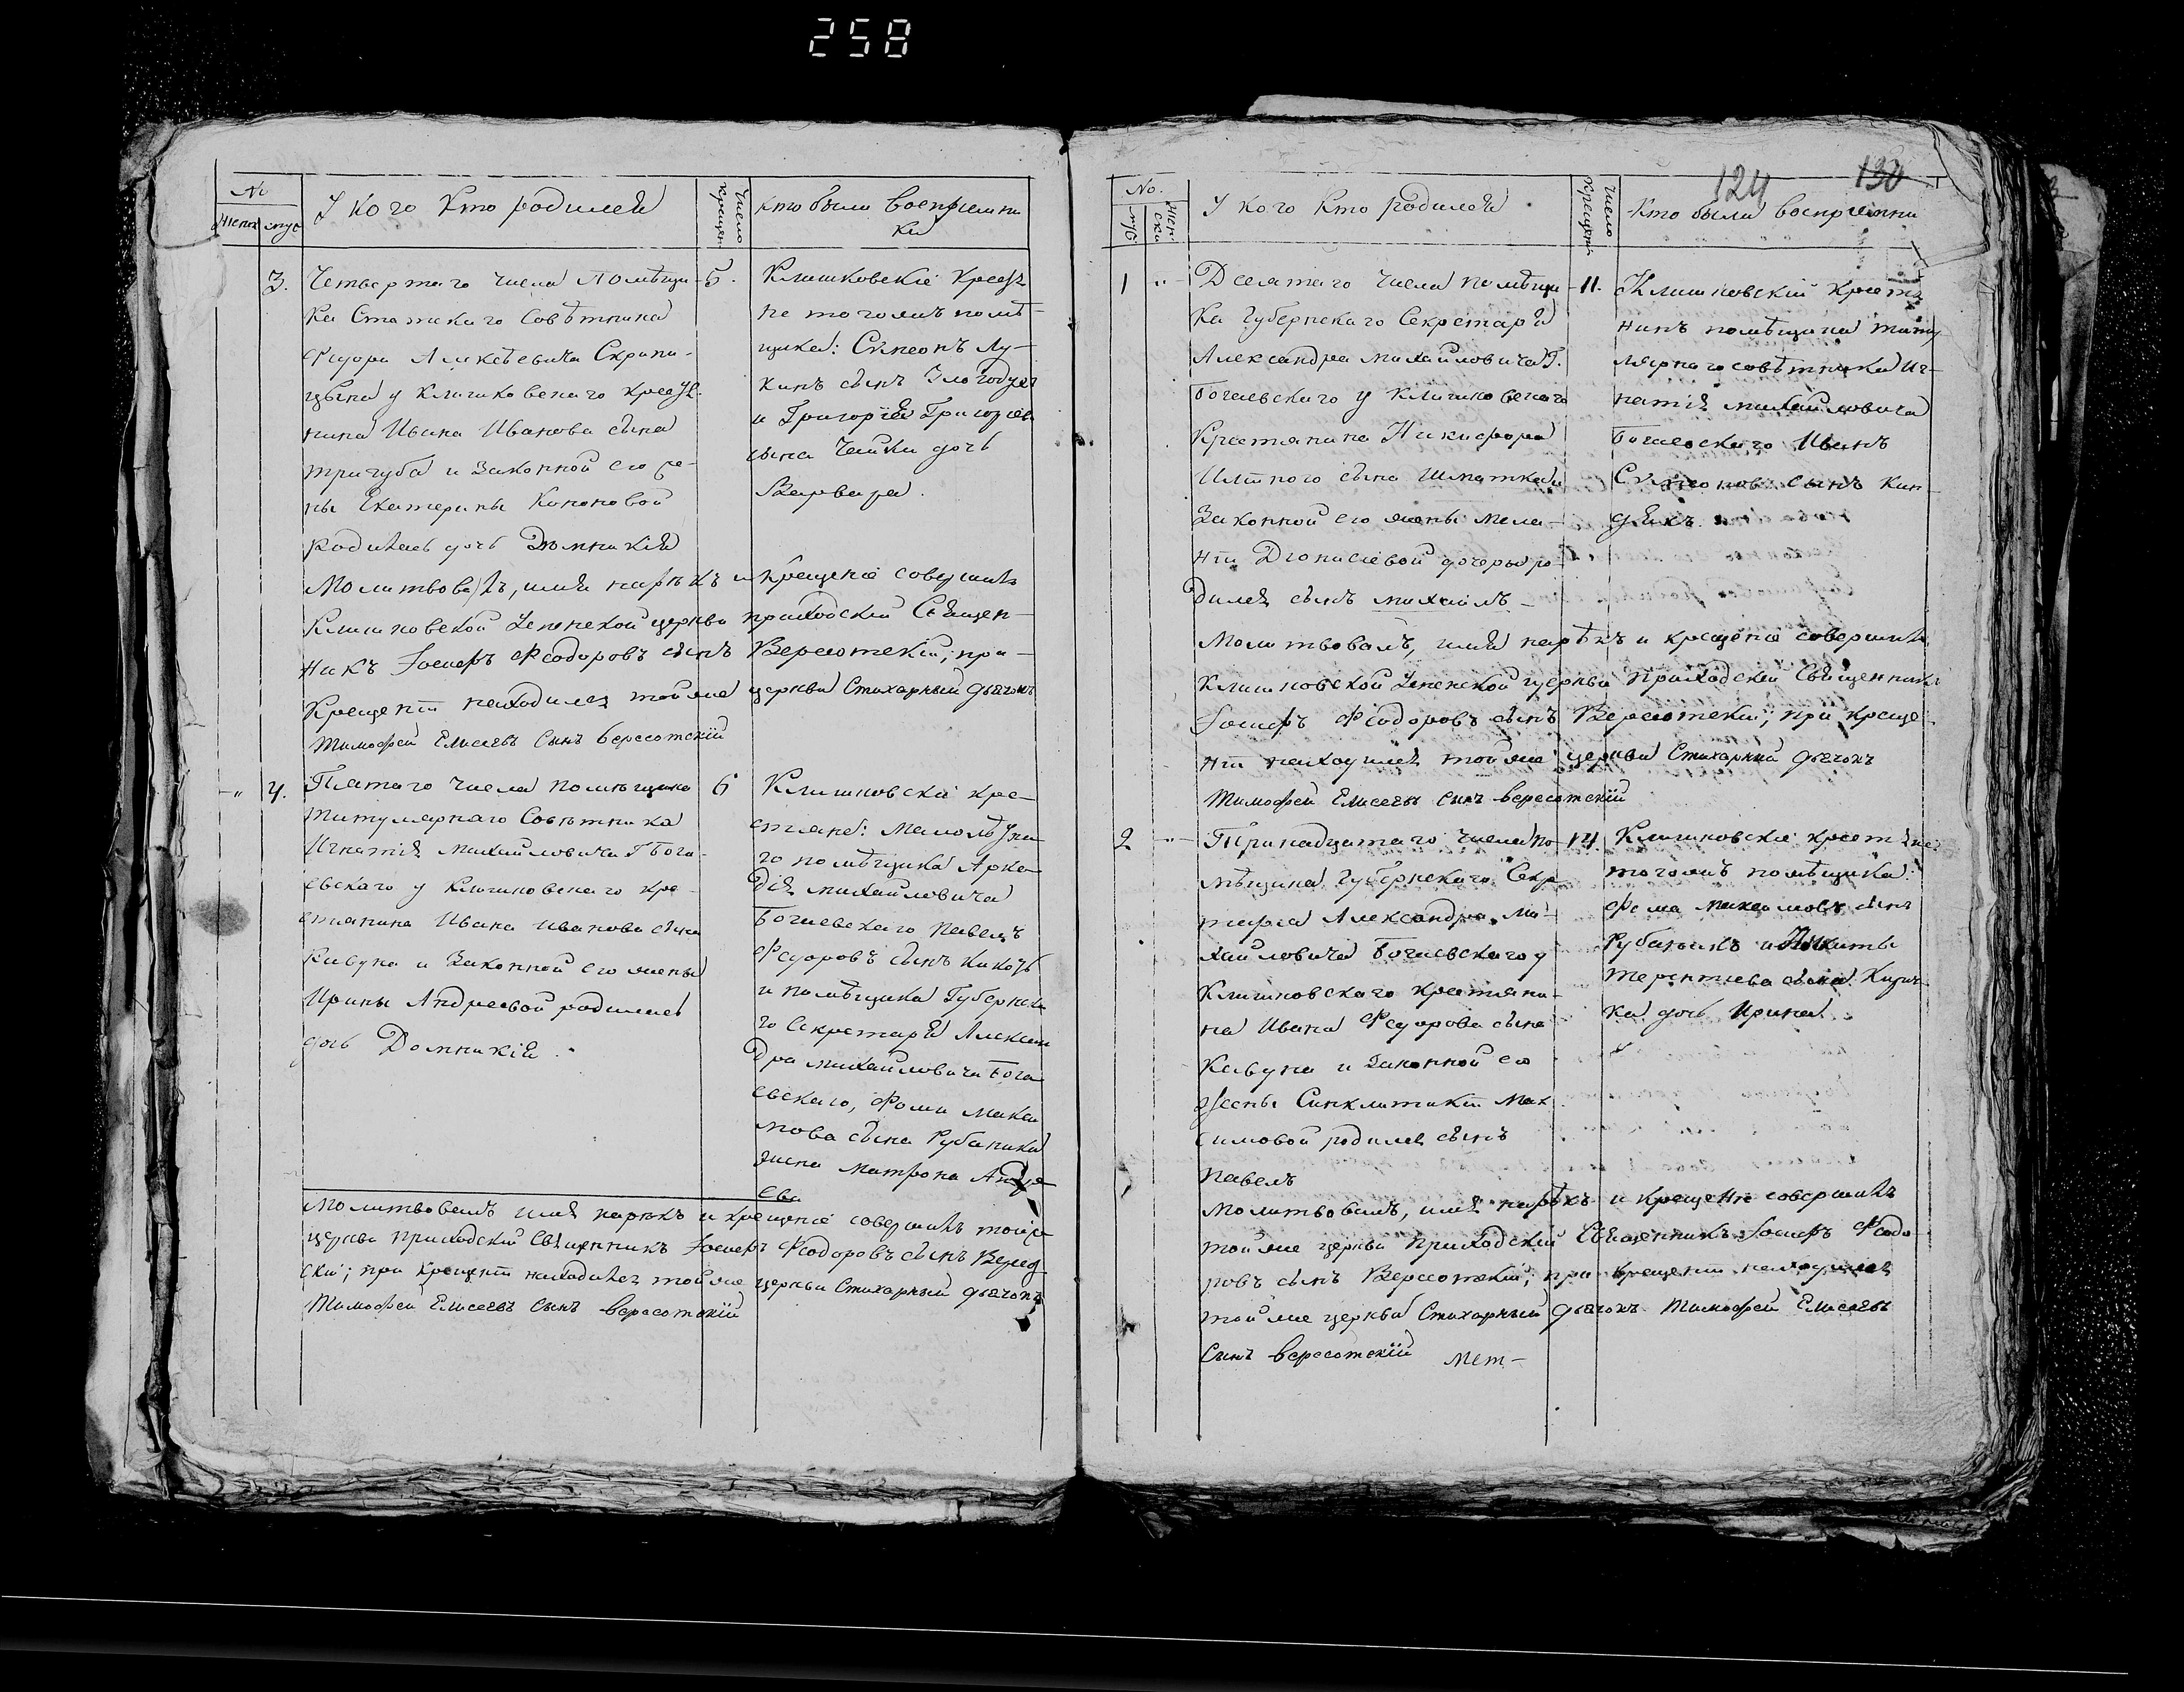 258
№
женс муж
У кого Кто родился
Число
крещен
кто были воспрiемни
ки
3. Четвертаго числа Помѣщи-
ка Статскаго Совѣтника
Федора Алексѣевича Скрипи-
цына у Клишковскаго кресть
нина Ивана Иванова сына
Тригуба и законной его же-
ны Екатерины Кононовой
родилась дочь Домникiя
5.
Клишковскiе кресть
не тогожъ помѣ-
щика: Сѵмеонъ Лу-
кинъ сынъ
и Григорiя Григорiева
сына Чайки дочь
Варвара.
Молитвовалъ, имя нарѣкъ и крещенiе совершилъ
Клишковской Успенской церкви приходскiй Священ-
никъ Iосифъ Феодоровъ сынъ Вересотскiй; при
Крещенiи находился той же церкви Стихарный дьячокъ
Тимофей Елисеевъ Сынъ Вересотскiй
-" 4. Пятаго числа помѣщика
Титулярнаго Совѣтника
Игнатiя Михайловича Г Бога-
евскаго у Клишковскаго кре-
стянина Ивана Иванова сына
Кавуна и Законной его жены
Ирины Андреевой родилась
дочь Домникiя.
6
Клишковскiе кре-
стяне: Малолѣтня
го помѣщика Арка
дiя Михайловича
Богаевскаго Павелъ
Федоровъ сынъ
и помѣщика Губернска
го Секретаря Алексан
дра Михайловича Бога
евскаго, Фомы Макси
мова сына Рубаника
жена Матрона Андре
ева
Молитвовалъ имя нарѣкъ и крещенiе совершилъ той же
церкви приходскiй Священникъ Iосифъ Феодоровъ сынъ Верес
скiй; при крещенiи находился той же церкви Стихарный дьячокъ
Тимофей Елисеевъ Сынъ Вересотскiй
124 130
№.
муж
жен
ски
У кого Кто родился
Число
Крещен
Кто были воспрiемни
1 " Десятаго числа помѣщи
ка Губернскаго Секретаря
Александра Михайловича Г.
Богаевскаго у Клишковскаго
Крестянина Никифора
сына Шматка и
Законной его жены Мела-
нiи Дiонисiевой дочери ро
дился сынъ Михаилъ
11.
Клишковскiй кресть
нинъ помѣщика титу
лярнаго совѣтника Иг-
натiя Михайловича
Богаевскаго Иванъ
Сѵмеоновъ сынъ Кин
дякъ.
Молитвовалъ, имя нарѣкъ и крещенiе совершилъ
Клишковской Успенской церкви Приходскiй Священникъ
Iосифъ Феодоровъ сынъ Вересотскiй; при креще
нiи находился той же церкви Стихарный дьячокъ
Тимофей Елисеевъ сынъ Вересотскiй
2 " Тринадцатаго числа по
мѣщика Губернскаго Секре
таря Александра Ми-
хайловича Богаевскаго у
Клишковскаго крестяни-
на Ивана Федорова сына
Кавуна и Законной его
жены Синклитикiи Мак
симовой родился сынъ
Павелъ
14
Клишковскiе крестяне
тогожъ помѣщика:
Фома Максимовъ сынъ
Рубаникъ и Никиты
Терентiева сына
ка дочь Ирина
Молитвовалъ, имя нарѣкъ и крещенiе совершилъ
той же церкви Приходскiй Священникъ Iосифъ Феодо
ровъ сынъ Вересотскiй; при крещенiи находился
той же церкви Стихарный дьячокъ Тимофей Елисеевъ
Сынъ Вересотскiй Мет-